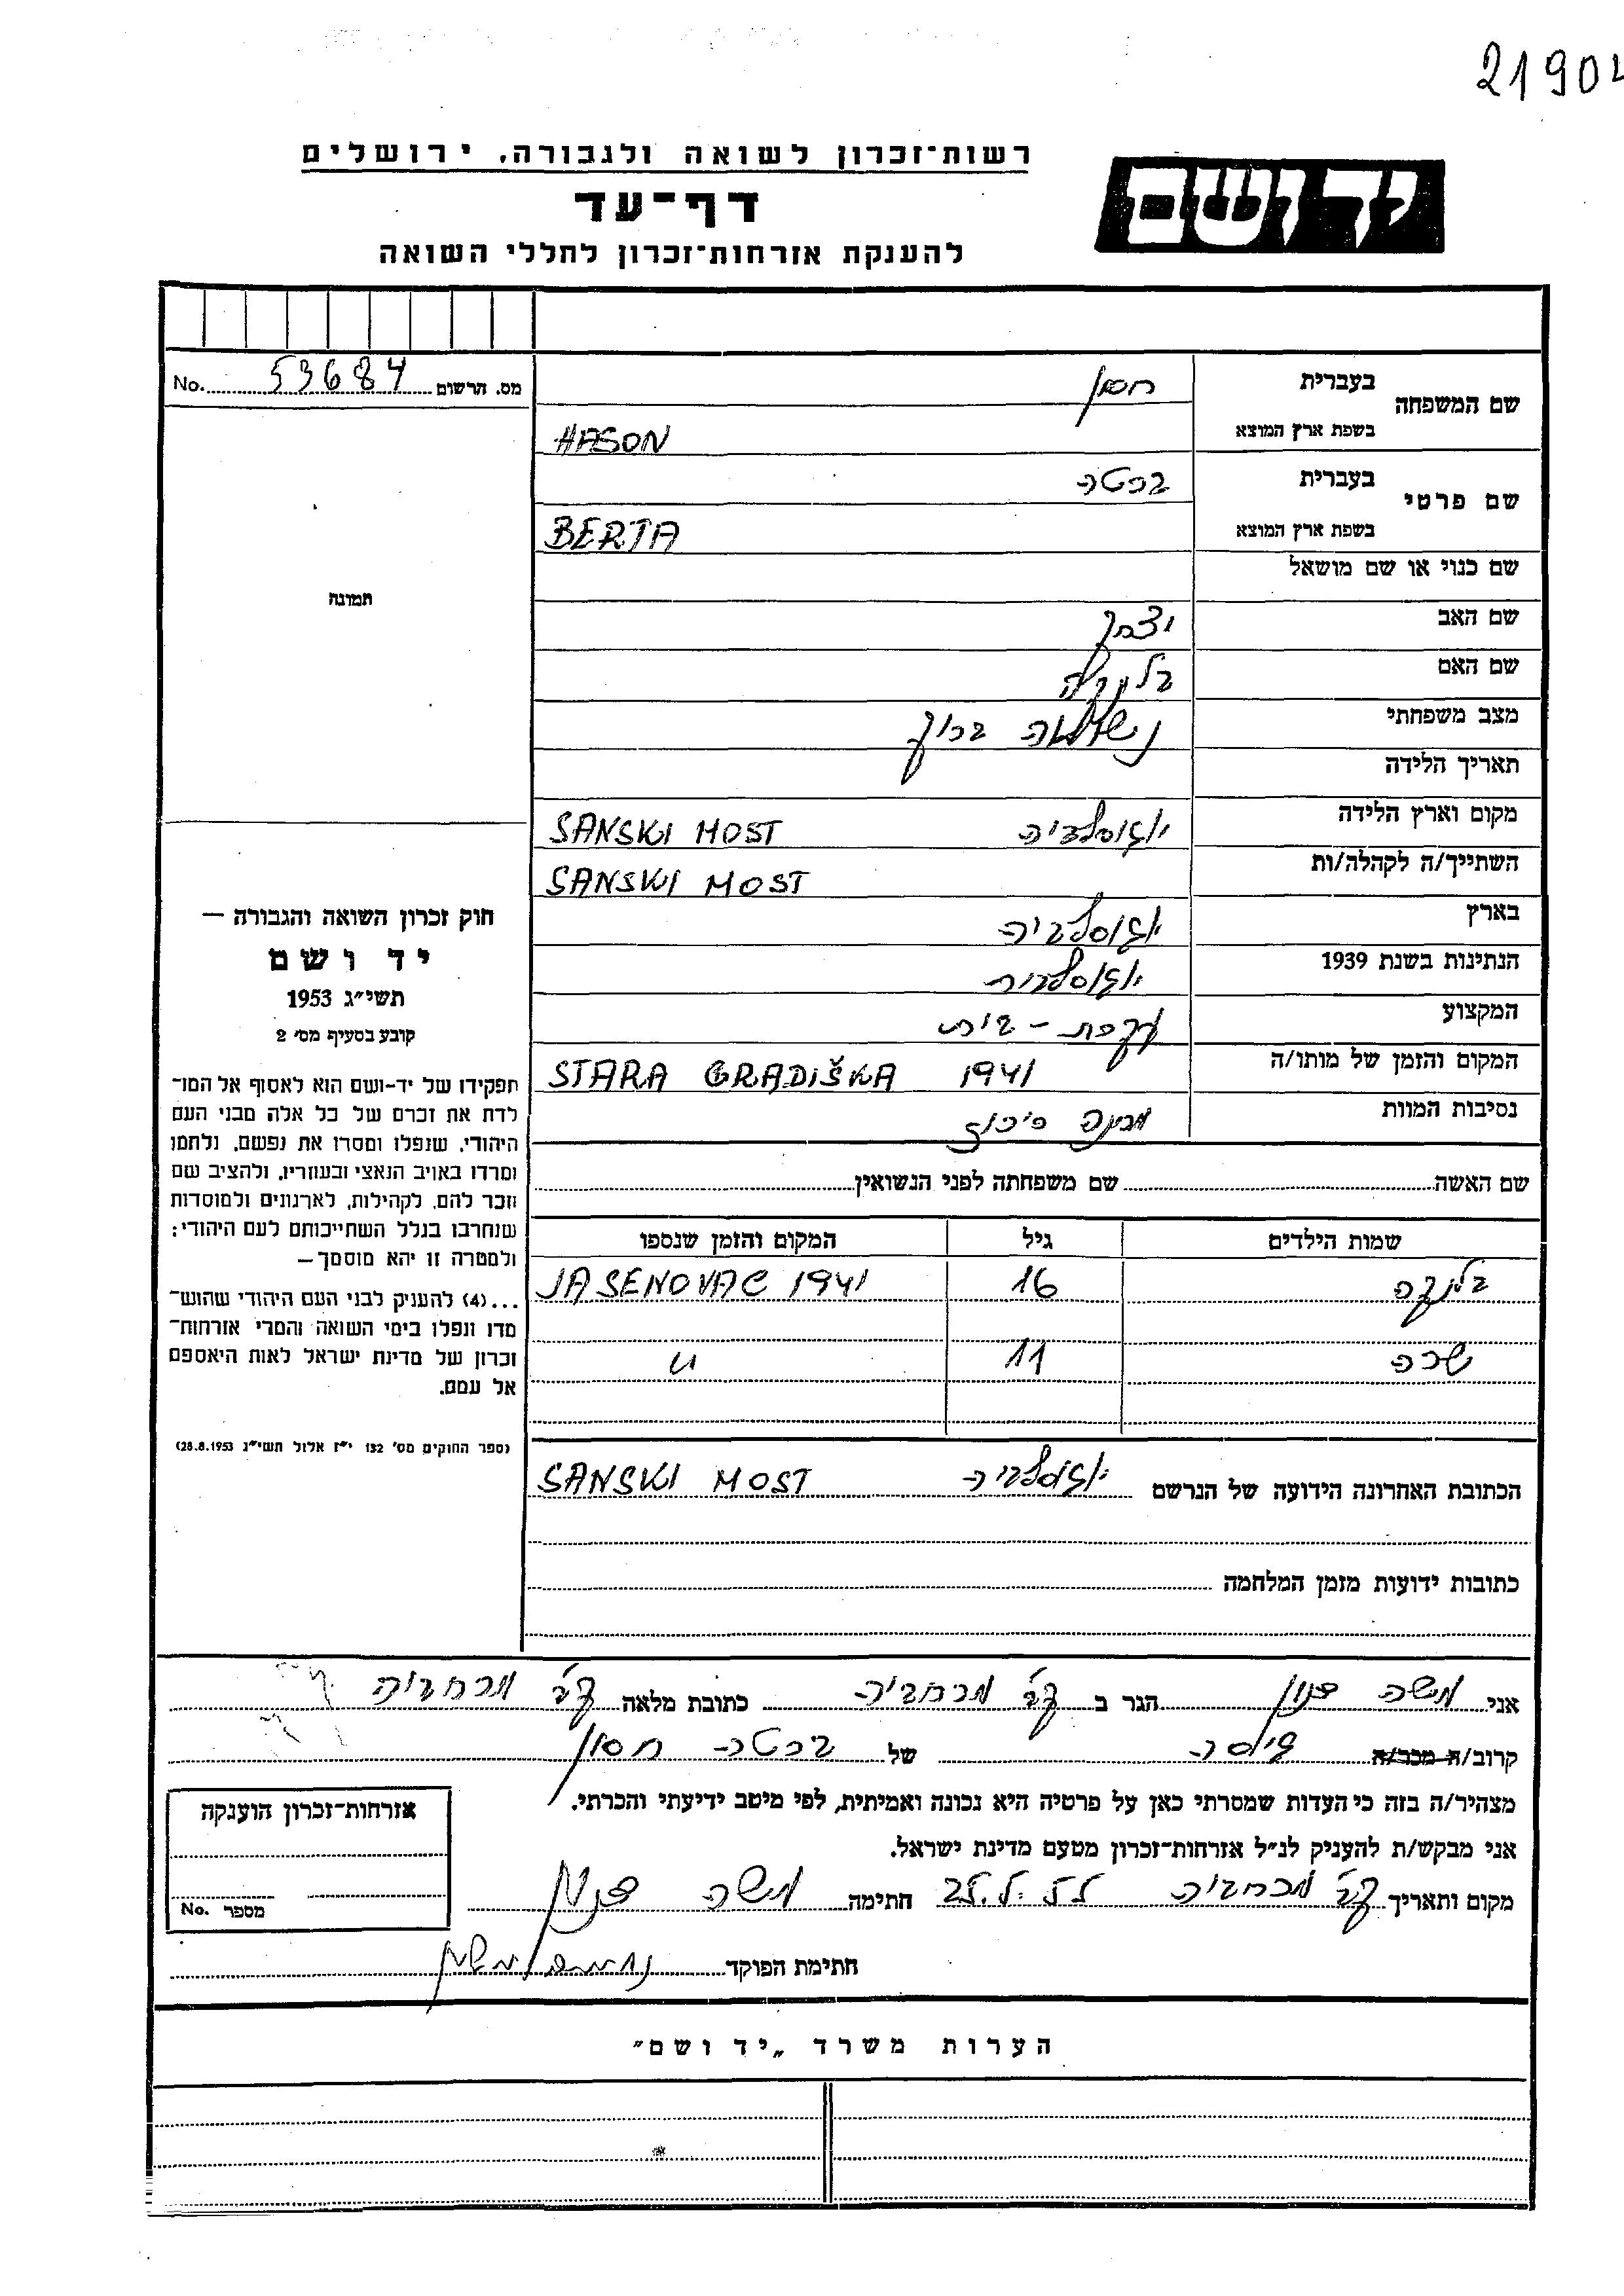 2190
רשות־זכרון לשואה ולגבורה, ירושלים
יד ושם
דף־עד
להענקת אזרחות־זכרון לחללי השואה
שם המשפחה בעברית חסון
בשפת ארץ המוצא HASON
שם פרטי בעברית ברטה
בשפת ארץ המוצא BERTA
שם כנוי או שם מושאל
שם האב יצחק
שם האם
מצב משפחתי נשואה ברוך
תאריך הלידה
מקום וארץ הלידה יוגוסלביה SANSKI MOST
השתייך/ה לקהלה/ות SANSKI MOST
בארץ יוגוסלביה
הנתינות בשנת 1939 יוגוסלבית
המקצוע עקרת-בית
המקום והזמן של מותו/ה STARA GRADIŠKA 1941
נסיבות המוות מחנה ריכוז
שם האשה שם משפחתה לפני הנשואין
שמות הילדים גיל המקום והזמן שנספו
בלנקה 16 JASENOVAC 1941
שרה 11 "
הכתובת האחרונה הידועה של הנרשם יוגוסלביה SANSKI MOST
כתובות ידועות מזמן המלחמה
מס. הרשום 53684 No.
תמונה
חוק זכרון השואה והגבורה —
יד ושם
תשי״ג 1953
קובע בסעיף מס׳ 2
תפקידו של יד-ושם הוא לאסוף אל המו־
לדת את זכרם של כל אלה מבני העם
היהודי, שנפלו ומסרו את נפשם, נלחמו
ומרדו באויב הנאצי ובעוזריו, ולהציב שם
וזכר להם, לקהילות, לארגונים ולמוסדות
שנחרבו בגלל השתייכותם לעם היהודי;
ולמטרה זו יהא מוסמך—
...(4) להעניק לבני העם היהודי שהוש־
מדו ונפלו בימי השואה והמרי אזרחות־
זכרון של מדינת ישראל לאות היאספם
אל עמם.
(ספר החוקים מס׳ 132 י״ז אלול תשי״ג 28.8.1953)
אני משה הגר ב קב׳ מרחביה כתובת מלאה קב׳ מרחביה
קרוב/ה מכר/ה של ברטה חסון
מצהיר/ה בזה כי העדות שמסרתי כאן על פרטיה היא נכונה ואמיתית, לפי מיטב ידיעתי והכרתי.
אני מבקש/ת להעניק לנ״ל אזרחות־זכרון מטעם מדינת ישראל.
מקום ותאריך קב׳ מרחביה חתימה משה
חתימת הפוקד
אזרחות־זכרון הוענקה
מספר No.
הערות משרד „יד ושם״